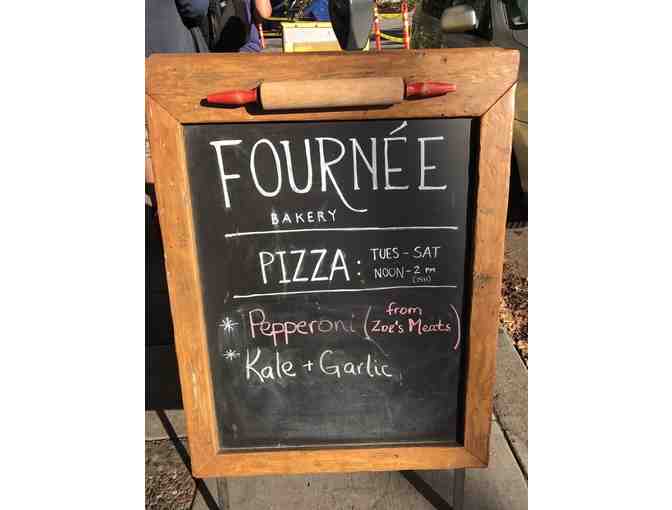 FOURNÉE
BAKERY
PIZZA: TUES - SAT
NOON - 2 PM
* Pepperoni (from
Zoe's Meats)
* Kale + Garlic